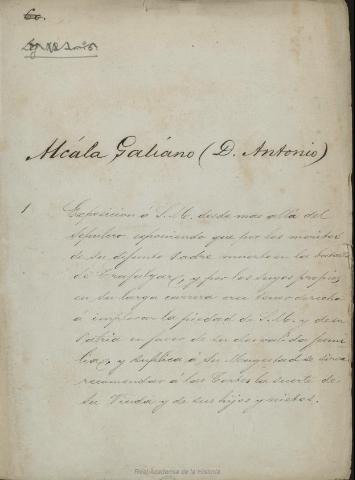 60.
Leg. Nº 2
Alcála Galiano (D. Antonio)
1 Exposicion á S. M. desde mas allá del
Sepulcro exponiendo que por los meritos
de su difunto Padre muerto en la batalla
de Trafalgar, y por los suyos propios
en su larga carrera cree tener derecho
á implorar la piedad de S. M. y de su
Patria en favor de su desvalida fami
lia, y suplica á Su Magestad se sirva
recomendar á las Cortes la suerte de
Su Viuda y de sus hijos y nietos.
Real Academia de la Historia